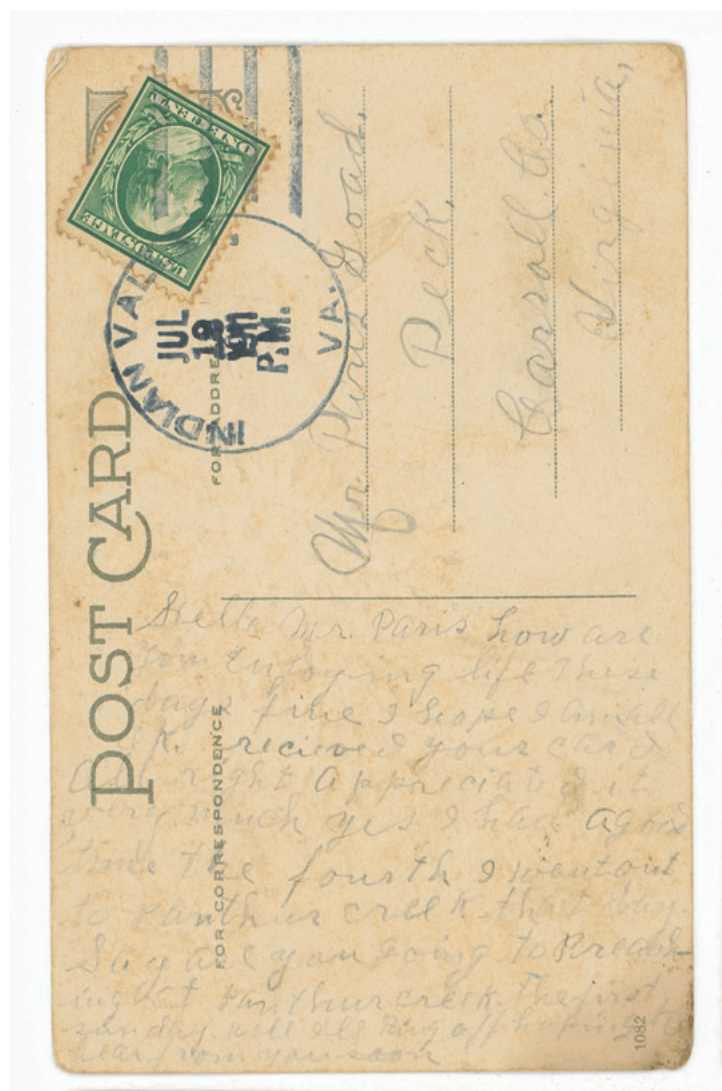 POST CARD
FOR ADDRESS
FOR CORRESPONDENCE
U.S. POSTAGE
ONE CENT
INDIAN VAL VA.
JUL
18
1911
P.M.
Mr. Goad.
Peck.
Carroll Co
Virginia,
Hello Mr. Paris how are
you Enjoying life these
days fine I hope I am all
O.K. recieved your card
all right Appreciated it
very much yes I had a good
time the fourth I went out
to Panthur creek that day.
Say are you going to Preach-
ing at Panthur creek the first
sunday will ring off hoping to
hear from you soon
1082